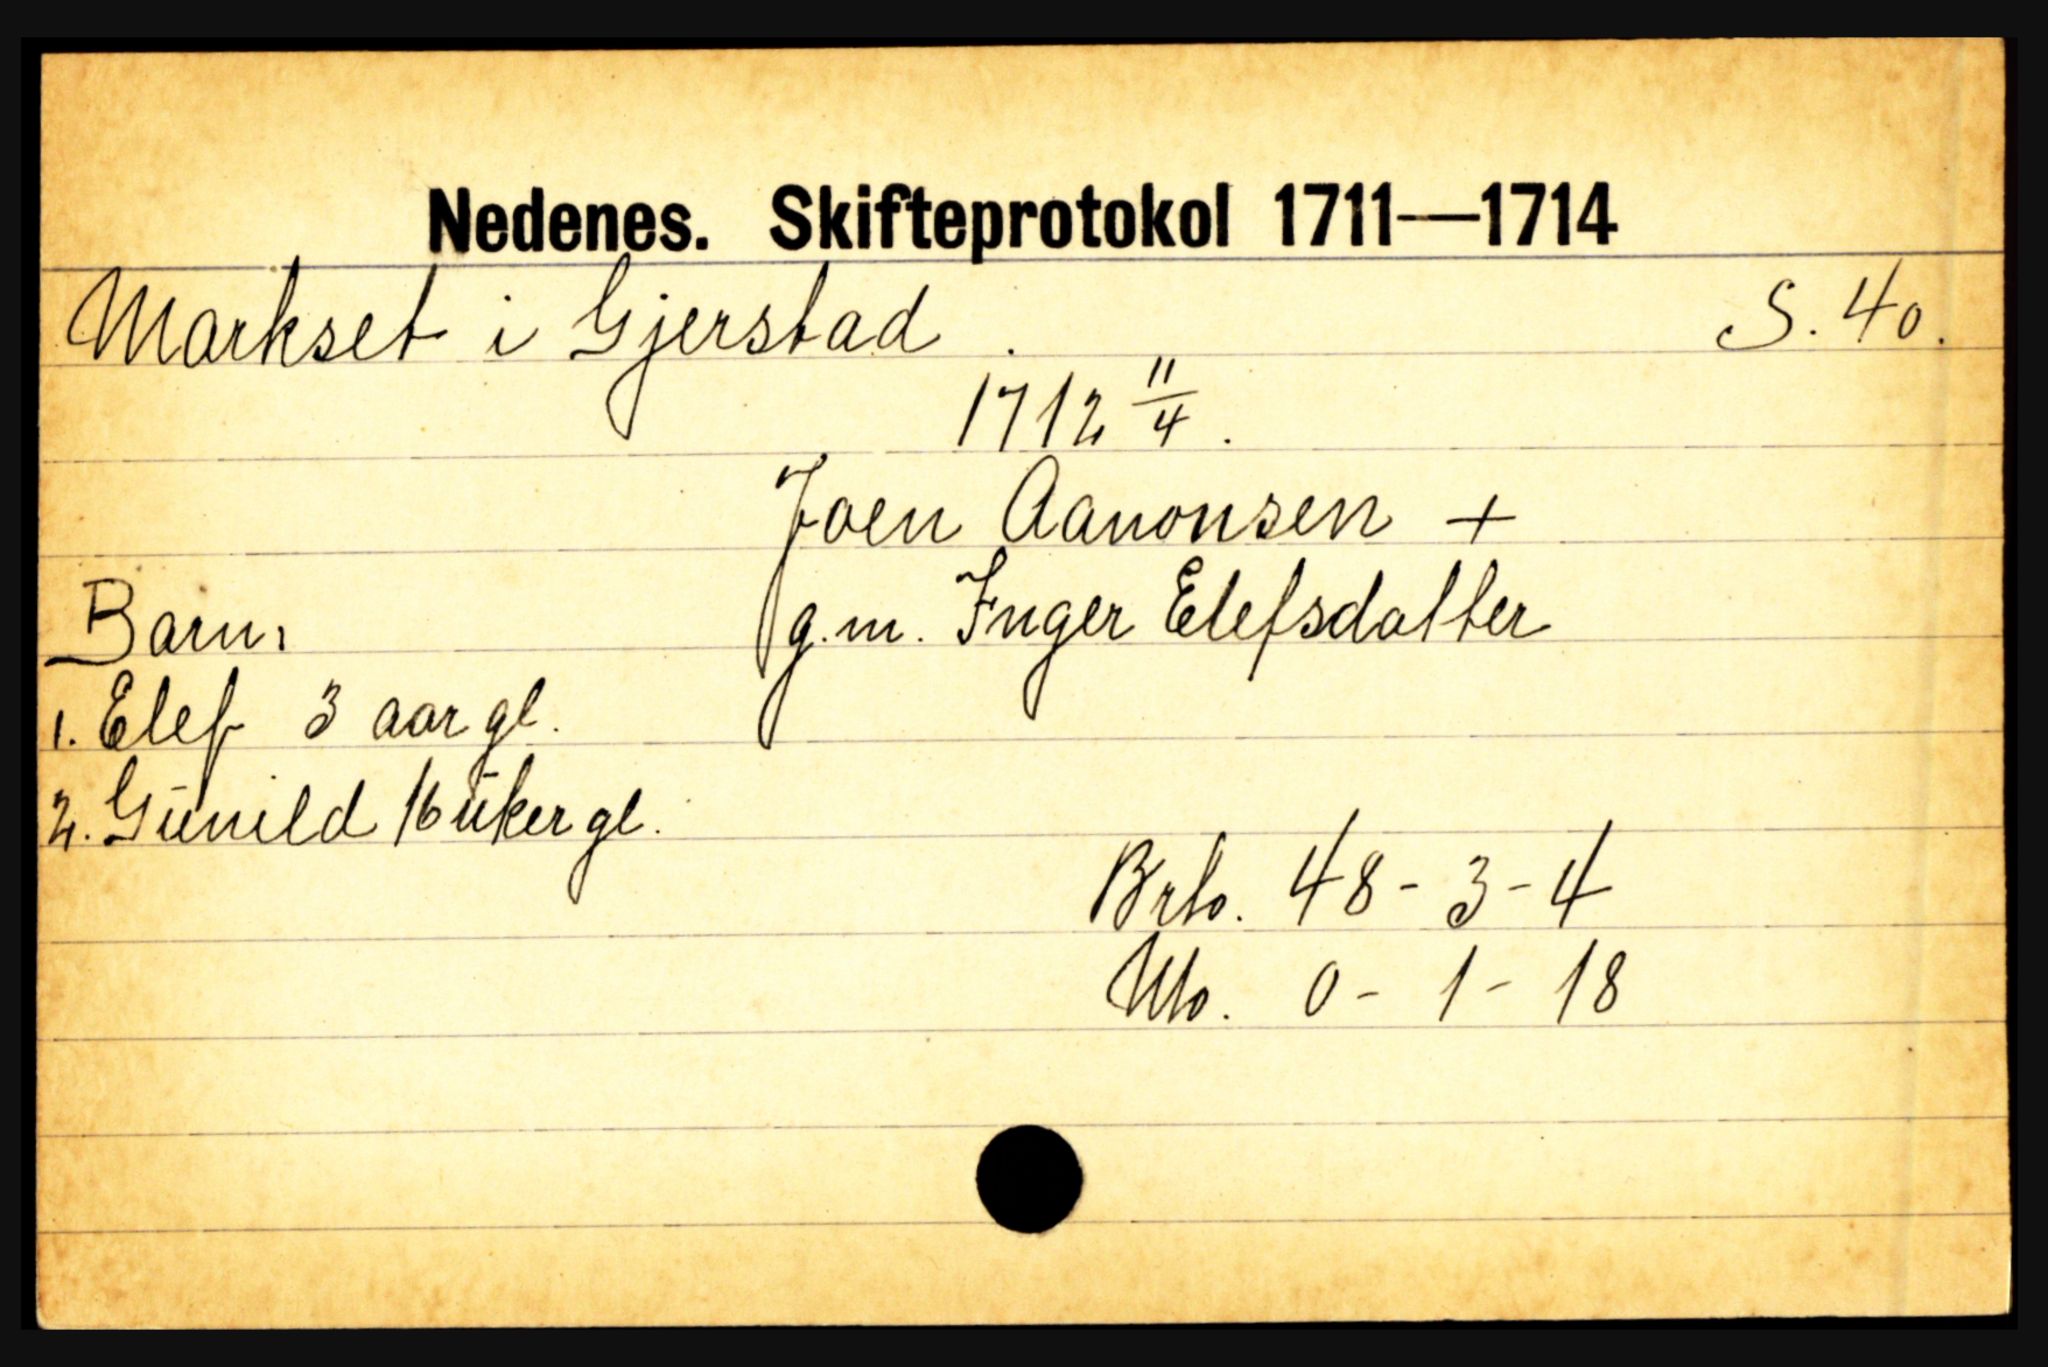 Nedenes. Skifteprotokol 1711—1714
Markset i Gjerstad. S. 40.
1712 11/4.
Joen Aanonsen +
g.m. Inger Elefsdatter
Barn:
1. Elef 3 aar gl.
2. Gunild 16 uker gl.
Brto. 48 - 3 - 4
Nto. 0 - 1 - 18